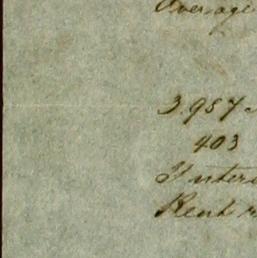 Average
3.957
403
Intere
Rent r